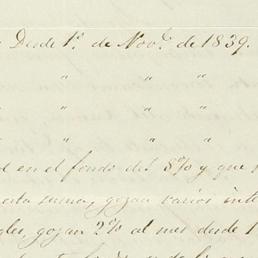 Desde 1º de Novº de 1839.
" " "
" " "
" " "
en el fondo del 8% y que
esta suma, gozan varios inte
gles, gozan 2% al mes desde 1